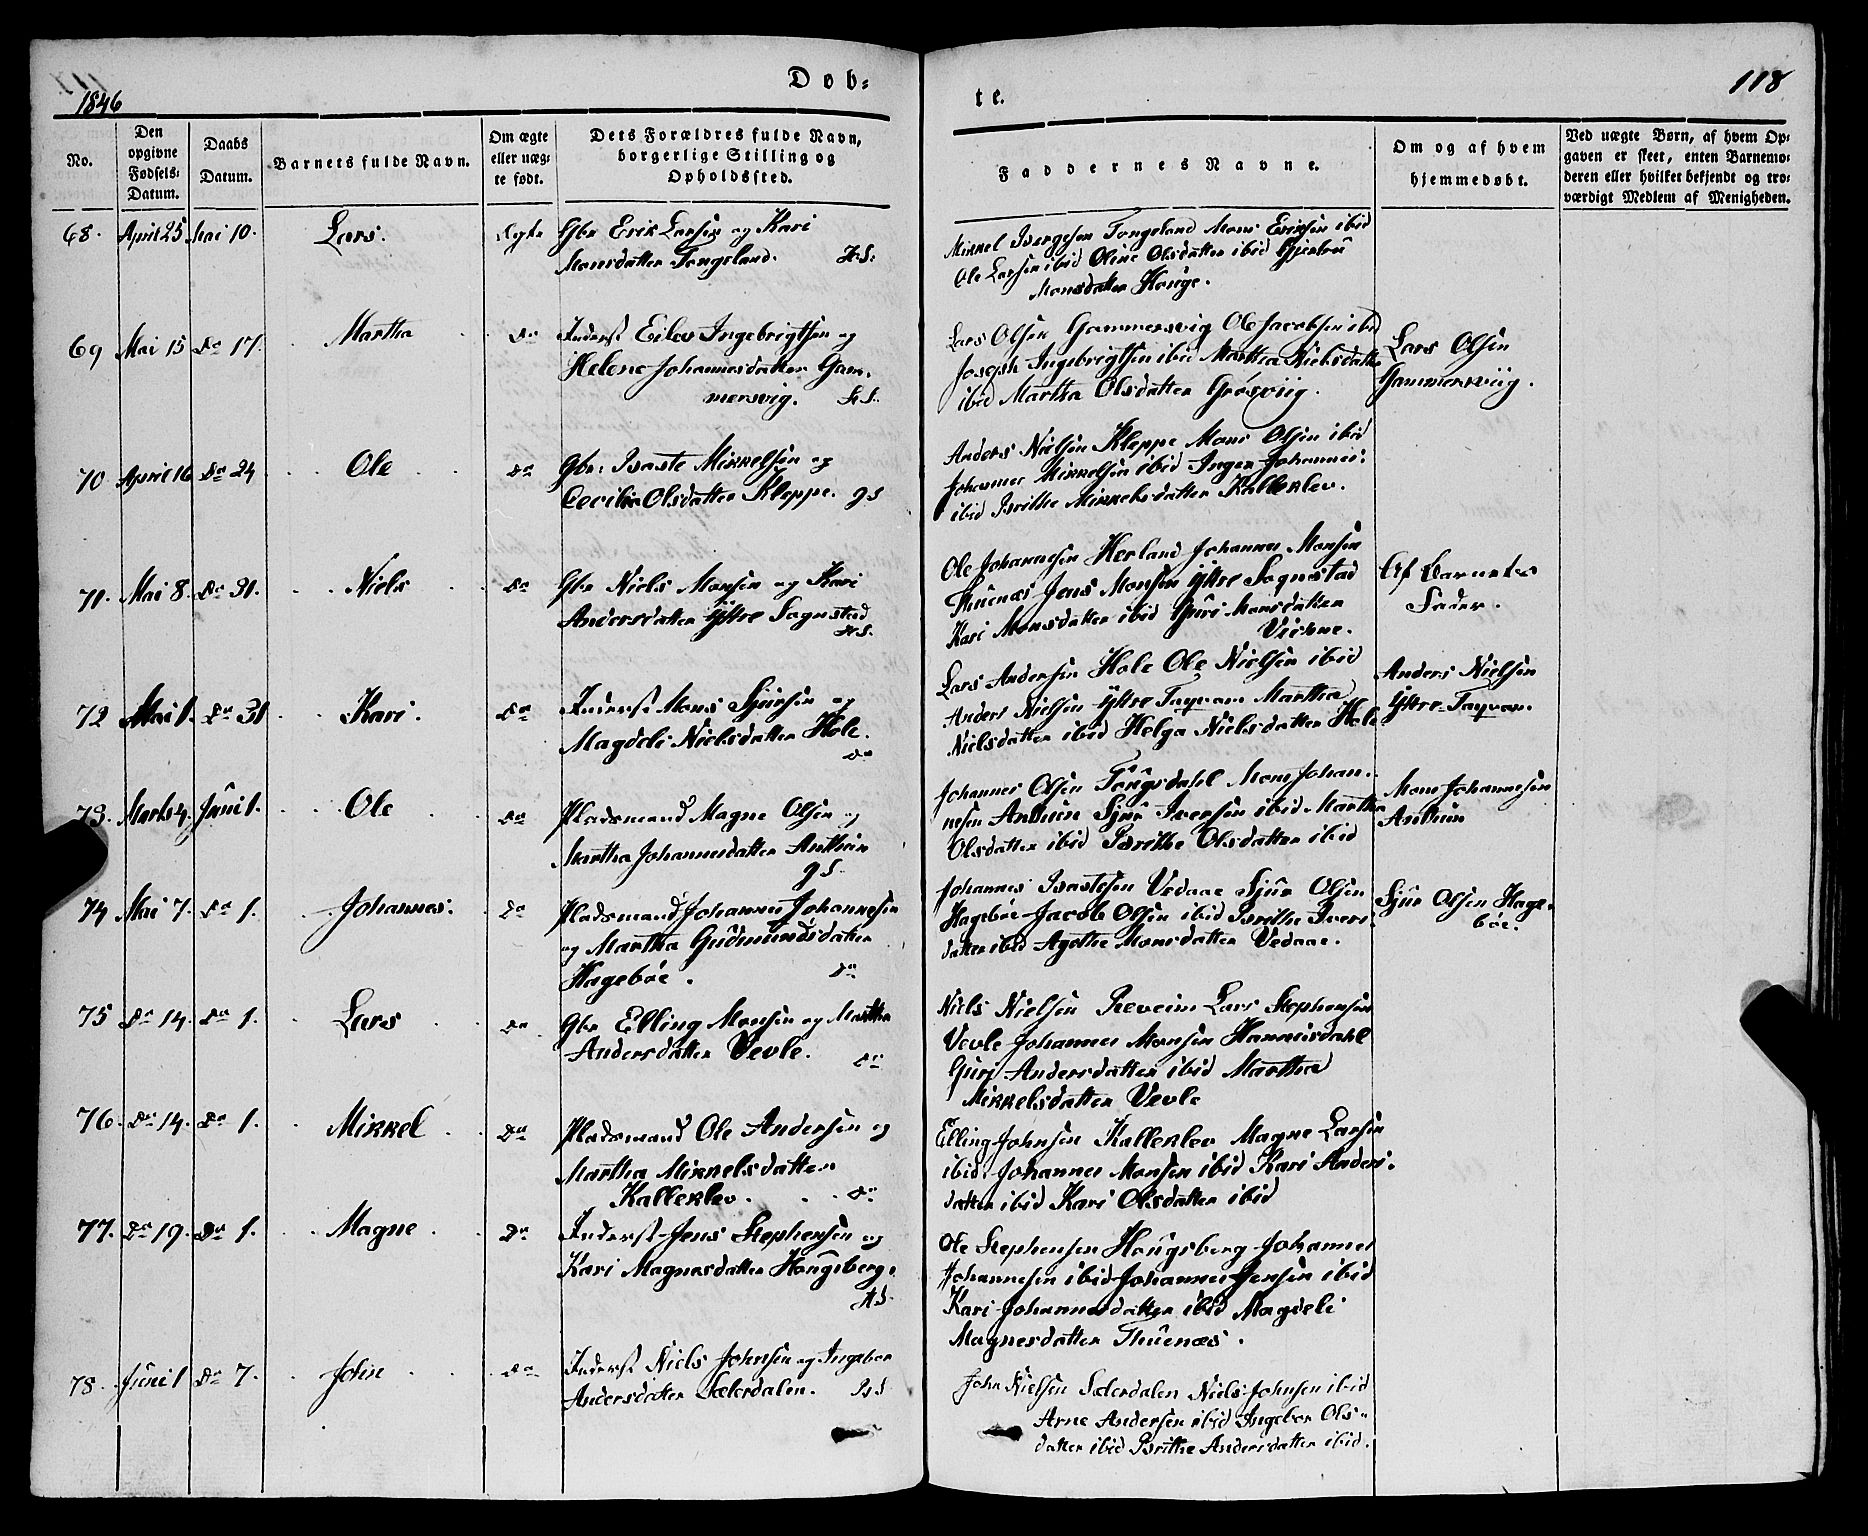 1846
Døb-
te.
118
No.
Den opgivne Fødsels-Datum.
Daabs Datum.
Barnets fulde Navn.
Om ægte eller uæg-te født.
Dets Forældres fulde Navn, borgerlige Stilling og Opholdssted.
Faddernes Navne.
Om og af hvem hjemmedøbt.
Ved uægte Børn, af hvem Op-gaven er skeet, enten Barnemo-deren eller hvilket bekjendt og tro-værdigt Medlem af Menigheden.
68. April 25 Mai 10. Lars. Ægte Gbr Erik Larsen og Kari
Monsdatter Tongeland. H.S.
Mikkel Tongeland Mons Eriksen ibid
Ole Larsen ibid Oline Olsdatter ibid
Monsdatter Houge.
69 Mai 15 Do 17. Martha Do Inderst Eilev Ingebrigtsen og
Helene Johannesdatter Gam-
mersvig. H.S.
Lars Olsen Gammersvig Ole Jacobsen ibid
Joseph Ingebrigtsen ibid Martha Nielsdatter
ibid Martha Olsdatter Grøsviig.
Lars Olsen
Gammersviig.
70 April 16 Do 24 Ole Do Gbr. Braste Mikkelsen og
Cecilia Olsdatter Kleppe. g S
Anders Nielsen Kleppe Mons Olsen ibid
Johannes Mikkelsen ibid Inger Johannes:
ibid Brithe Mikkelsdatter Kallekley.
71. Mai 8. Do 31. Niels Do Gbr Niels Monsen og Kari
Andersdatter Yttre Sagnstad
H.S.
Ole Johannesen Herland Johannes Monsen
Thuenæs Jens Monsen Yttre Sagnstad
Kari Monsdatter ibid Guri Monsdatter
Vikne.
Af Barnets
Fader.
72 Mai 1. Do 31 Kari. Do Inderst Mons Sjursen og
Magdeli Nielsdatter Hole.
Do
Lars Andersen Hole Ole Nielsen ibid
Anders Nielsen Yttre Martha
Nielsdatter ibid Helga Nielsdatter Hole
Anders Nielsen
Yttre
73. Marts 4. Juni 1. Ole Do Pladsmand Magne Olsen og
Martha Johannesdatter
g S.
Johannes Olsen Mons Johan-
nesen Sjur Iversen ibid Martha
Olsdatter ibid Brithe Olsdatter ibid
Mons Johannesen
74 Mai 7. Do 1. Johannes. Do Pladsmand Johannes Johannesen
og Martha Gudmundsdatter
Hagebøe. Do
Johannes Brastesen Vedaae Sjur Olsen
Hagebøe Jacob Olsen ibid Brithe Ivers-
datter ibid Agathe Monsdatter Vedaae.
Sjur Olsen Hage-
bøe.
75 Do 14. Do 1. Lars Do Gbr Elling Monsen og Martha
Andersdatter Vevle. Do
Niels Nielsen Reveim Lars Stephensen
Vevle Johannes Monsen
Guri Andersdatter ibid Martha
Mikkelsdatter Vevle
76. Do 14. Do 1. Mikkel Do Pladsmand Ole Andersen og
Martha Mikkelsdatter
Kalleklev. Do
Elling Johnsen Kalleklev Magne Larsen
ibid Johannes Monsen ibid Kari Anders-
datter ibid Kari Olsdatter ibid
77. Do 19. Do 1. Magne Do Inderst Jens Stephensen og
Kari Magnesdatter Hougsberg.
H.S.
Ole Stephensen Hougsberg Johannes
Johannesen ibid Johannes Jensen ibid
Kari Johannesdatter ibid Magdeli
Magnesdatter Thuenæs.
78. Juni 1 Do 7. John Do Inderst Niels Johnsen og Ingebor
Andersdatter Sælerdalen.
John Nielsen Sælerdalen Niels Johnsen ibid
Arne Andersen ibid Ingebor Ols-
datter ibid Brithe Andersdatter ibid.